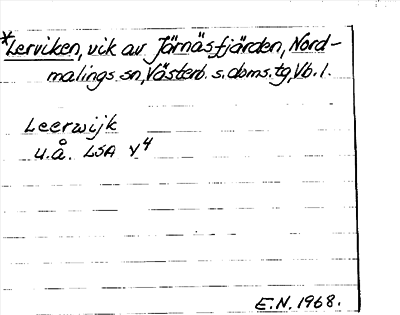 *Lerviken, vik av Järnäsfjärden, Nord-
malings sn, Västerb. s. doms. tg, Vb. l.
Leerwijk
u.å. LSA V4
E.N. 1968.